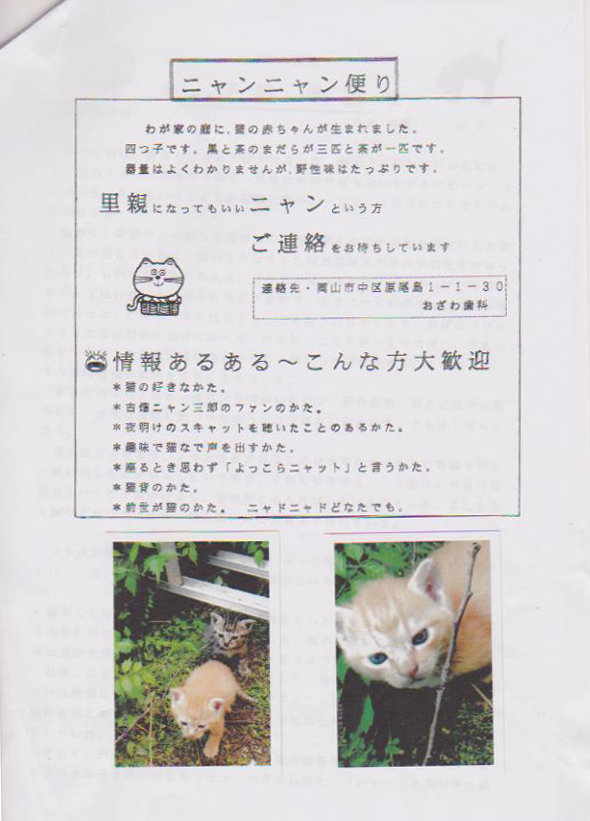 ニャンニャン便り
わが家の庭に、猫の赤ちゃんが生まれました。
四つ子です。黒と茶のまだらが三匹と茶が一匹です。
器量はよくわかりませんが、野性味はたっぷりです。
里親になってもいいニャンという方
ご連絡をお待ちしています
連絡先・岡山市中区原尾島１－１－３０
おざわ歯科
情報あるある～こんな方大歓迎
＊猫の好きなかた。
＊古畑ニャン三郎のファンのかた。
＊夜明けのスキャットを聴いたことのあるかた。
＊趣味で猫なで声を出すかた。
＊座るとき思わず「よっこらニャット」と言うかた。
＊猫背のかた。
＊前世が猫のかた。　ニャドニャドどなたでも。